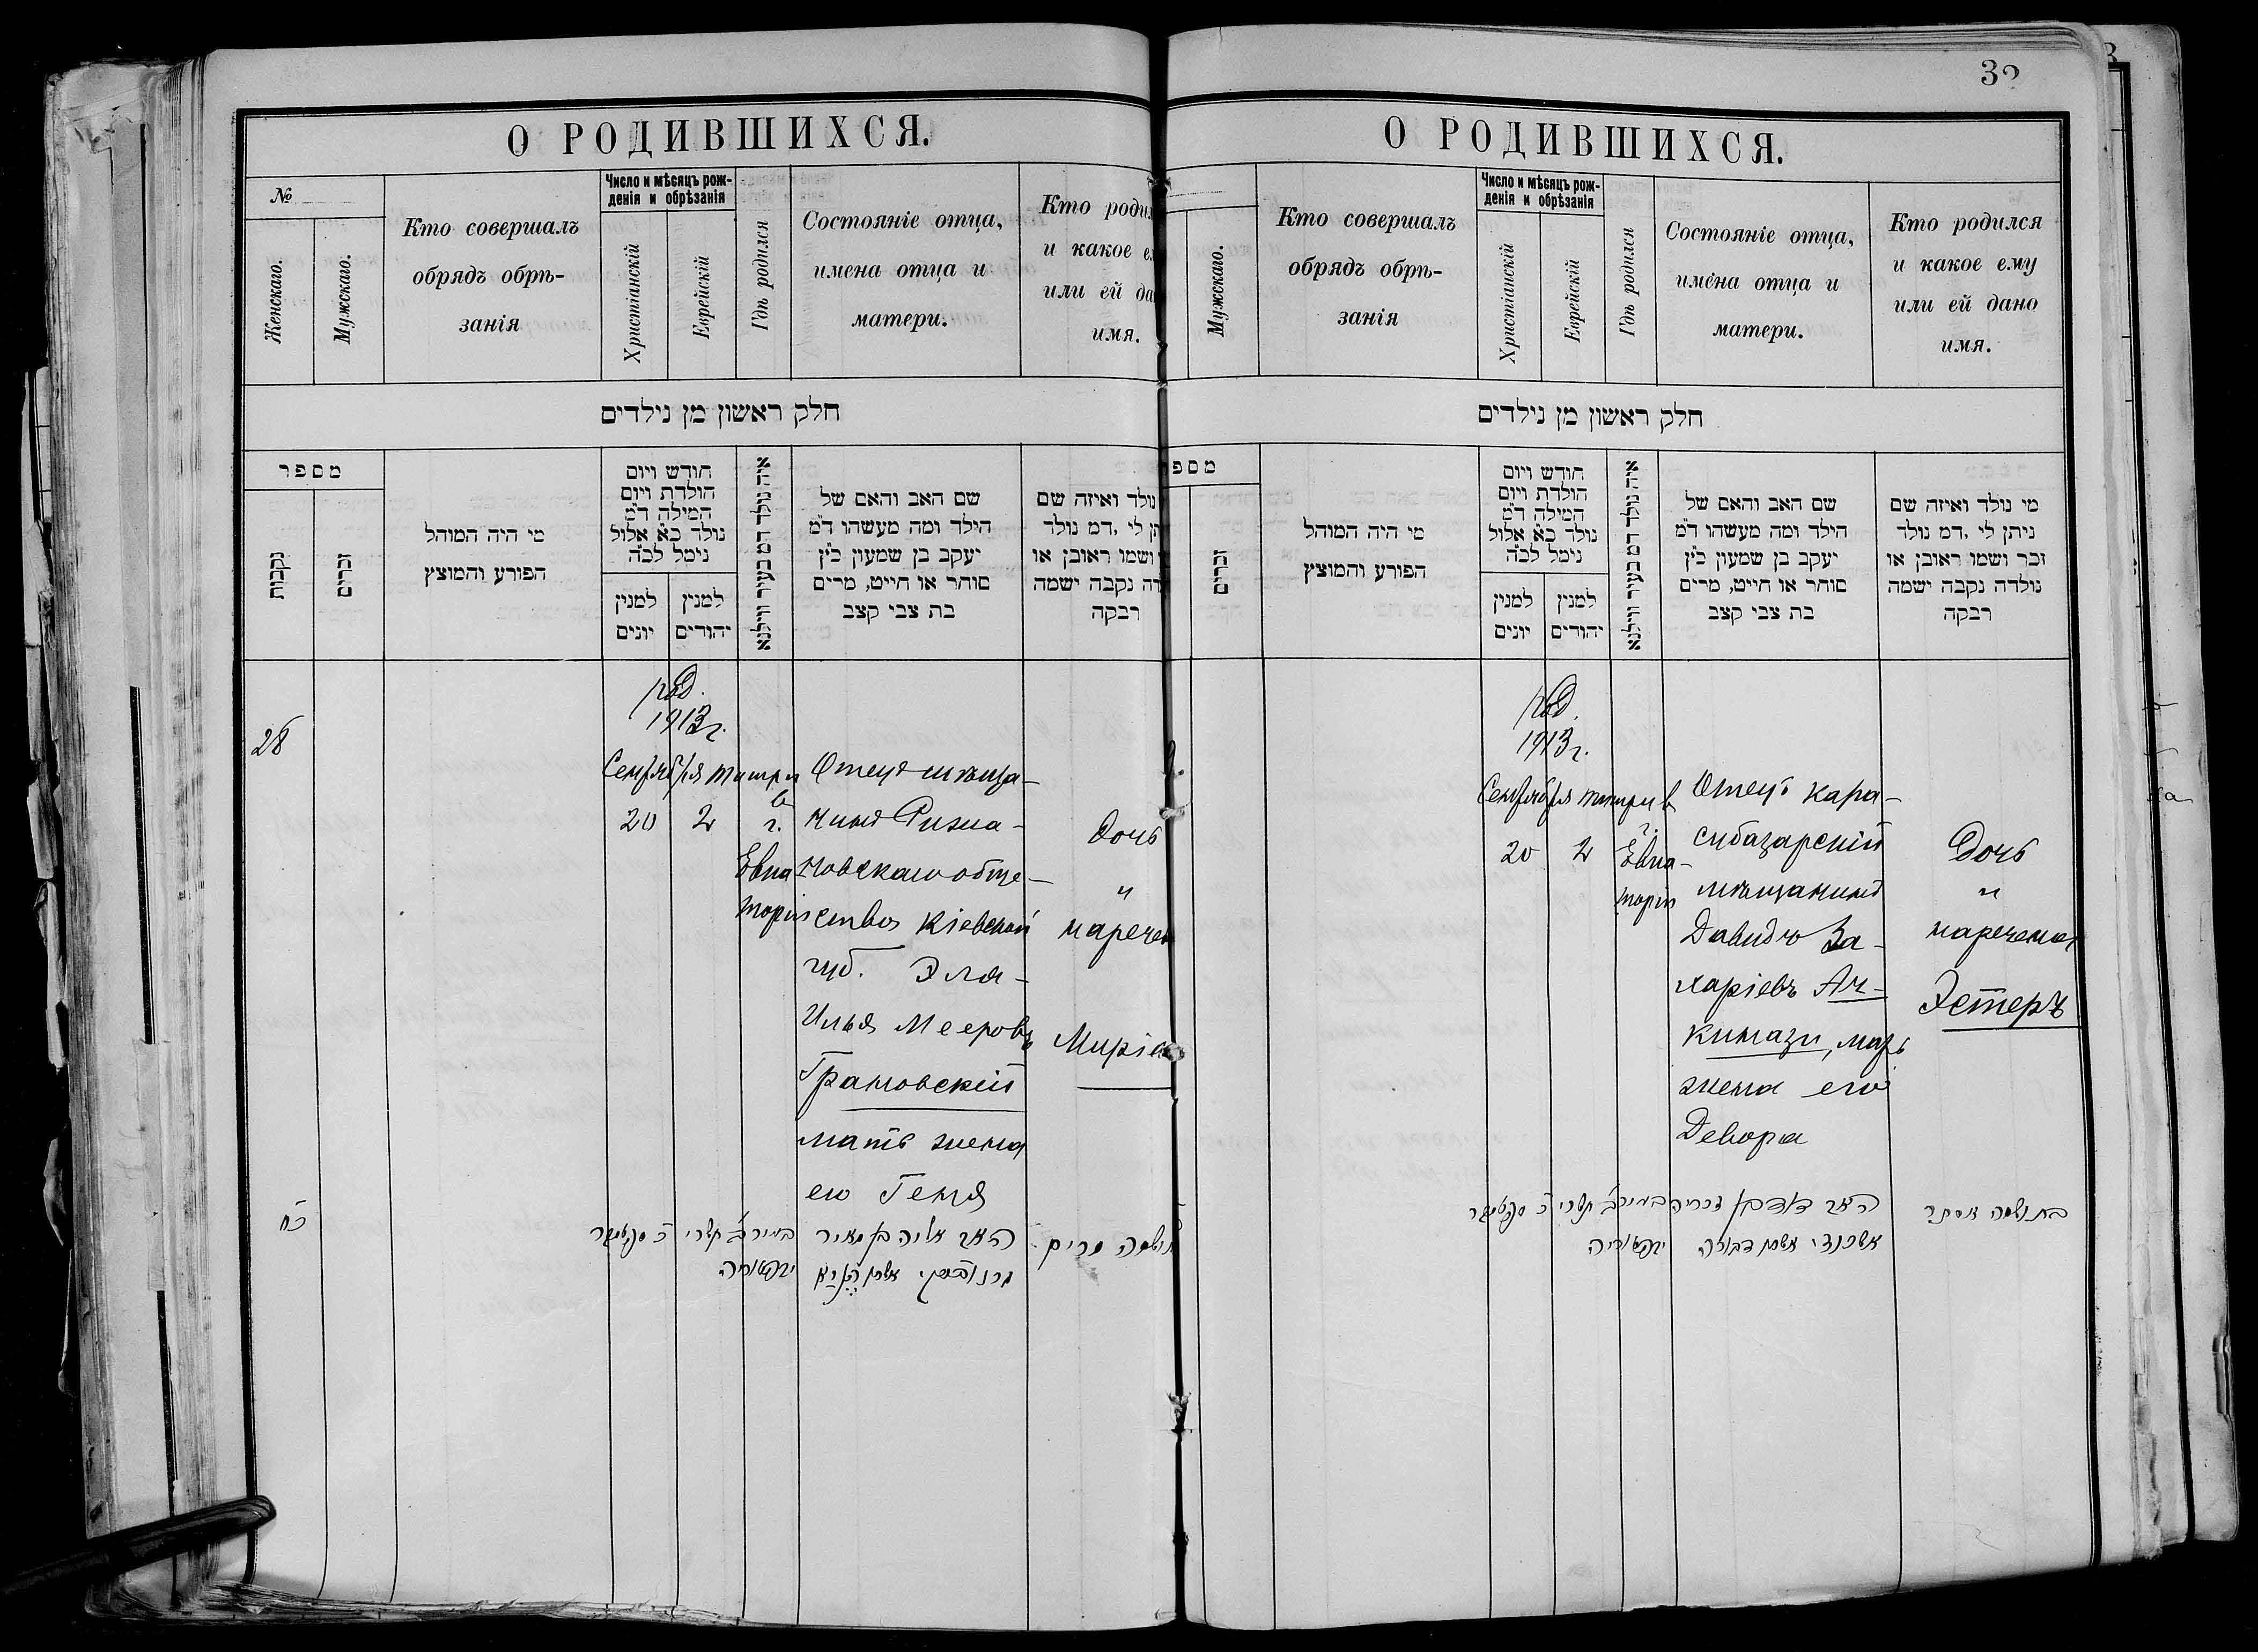 О РОДИВШИХСЯ.
№
Женскаго.
Мужскаго.
Кто совершалъ
обрядъ обрѣ-
занія
Число и мѣсяцъ рож-
денія и обрѣзанія
Христіанскій
Еврейскій
Гдѣ родился
Состояніе отца,
имена отца и
матери.
Кто родил
и какое е
или ей да
имя.
חלק ראשון מן נילדים
מספר
נקבות
זכרים
מי היה המוהל
הפורע והמוצץ
חודש ויום
הולדת ויום
המילה ד"מ
נולד כ"א אלול
נימל לכ"ה
למנין
יונים
למנין
יהודים
איה נולד דמ בעיר ווילנא
שם האב והאם של
הילד ומה מעשהו ד"מ
יעקב בן שמעון כ"ץ
סוחר או חייט, מרים
בת צבי קצב
נולד ואיזה שם
תן לי ,דמ נולד
ושמו ראובן או
דה נקבה ישמה
רבקה
28
род.
1913 г.
Сентября
20
Тишри
2
в
г.
Евпа
торіи
Отецъ мѣща-
нинъ
новскаго обще-
ства Кіевской
губ. Эла-
Илья Мееровъ
Грановскій
мать жена
его Геня
Дочь
"
наречен
Миріа
כח
כ ספטמבר
תשרי
יופטוריה
האב אליה בן מאיר
מרים
32
О РОДИВШИХСЯ.
Мужскаго.
Кто совершалъ
обрядъ обрѣ-
занія
Число и мѣсяцъ рож-
денія и обрѣзанія
Христіанскій
Еврейскій
Гдѣ родился
Состояніе отца,
имена отца и
матери.
Кто родился
и какое ему
или ей дано
имя.
חלק ראשון מן נילדים
מספ
זכרים
מי היה המוהל
הפורע והמוצץ
חודש ויום
הולדת ויום
המילה ד"מ
נולד כ"א אלול
נימל לכ"ה
למנין
יונים
למנין
יהודים
איה נולד דמ בעיר ווילנא
שם האב והאם של
הילד ומה מעשהו ד"מ
יעקב בן שמעון כ"ץ
סוחר או חייט, מרים
בת צבי קצב
מי נולד ואיזה שם
ניתן לי ,דמ נולד
זכר ושמו ראובן או
נולדה נקבה ישמה
רבקה
род.
1913 г.
Сентября
20
Тишри
2
в
г.
Евпа-
торіи
Отецъ кара-
субазарскій
мѣщанинъ
Давидъ За-
харіевъ Ач-
кинази, мать
жена его
Девора
Дочь
"
наречена
Эстеръ
כ ספטמבר
תשרי
יופטוריה
האב דוד בן זכריה
אשכנזי אשתו דבורה
בת ושמה אסתר